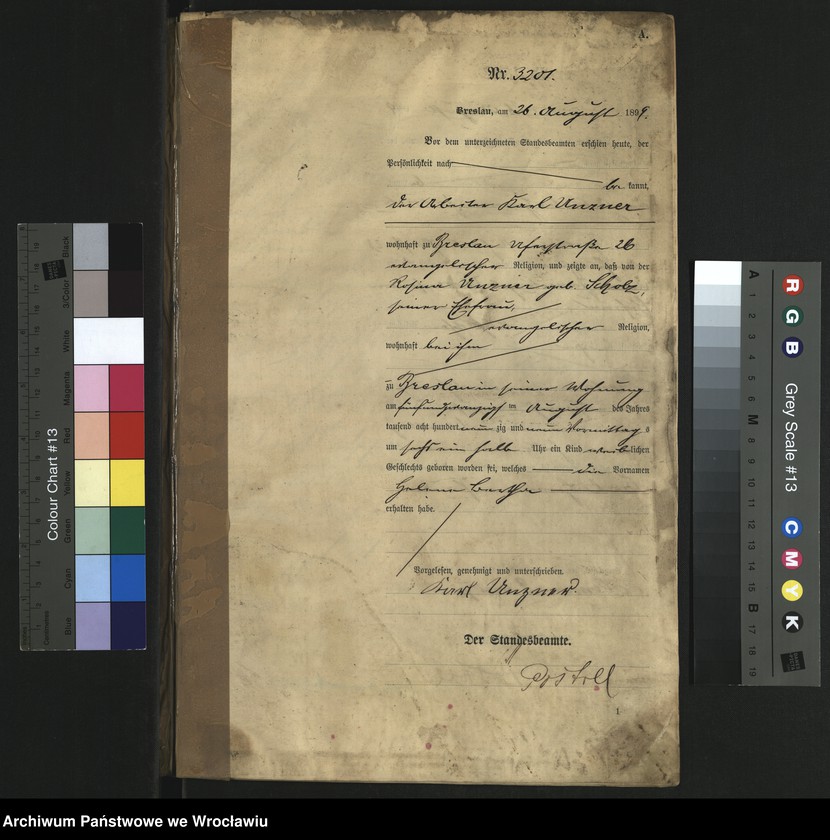 A.
Nr. 3201.
Breslau, am 26. August 1899.
Vor dem unterzeichneten Standesbeamten erschien heute, der
Persönlichkeit nach
be kannt,
der Arbeiter Karl Unzner
wohnhaft zu Breslau Uferstraße 26
evangelischer Religion, und zeigte an, daß von der
Rosina Unzner geb. Scholz,
seiner Ehefrau,
evangelischer Religion,
wohnhaft bei ihm
zu Breslau in seiner Wohnung
am fünfundzwanzigsten August des Jahres
tausend acht hundert neun zig und neun Vormittags
um sechs ein halb Uhr ein Kind weiblichen
Geschlechts geboren worden sei, welches die Vornamen
Helene Bertha
erhalten habe.
Vorgelesen, genehmigt und unterschrieben.
Karl Unzner.
Der Standesbeamte.
1
Colour Chart #13
Blue Cyan Green Yellow Red Magenta White 3/Color Black
Centimetres
Grey Scale #13
R G B C M Y K
A 1 2 3 4 5 6 M 8 9 10 11 12 13 14 15 B 17 18 19
Archiwum Państwowe we Wrocławiu